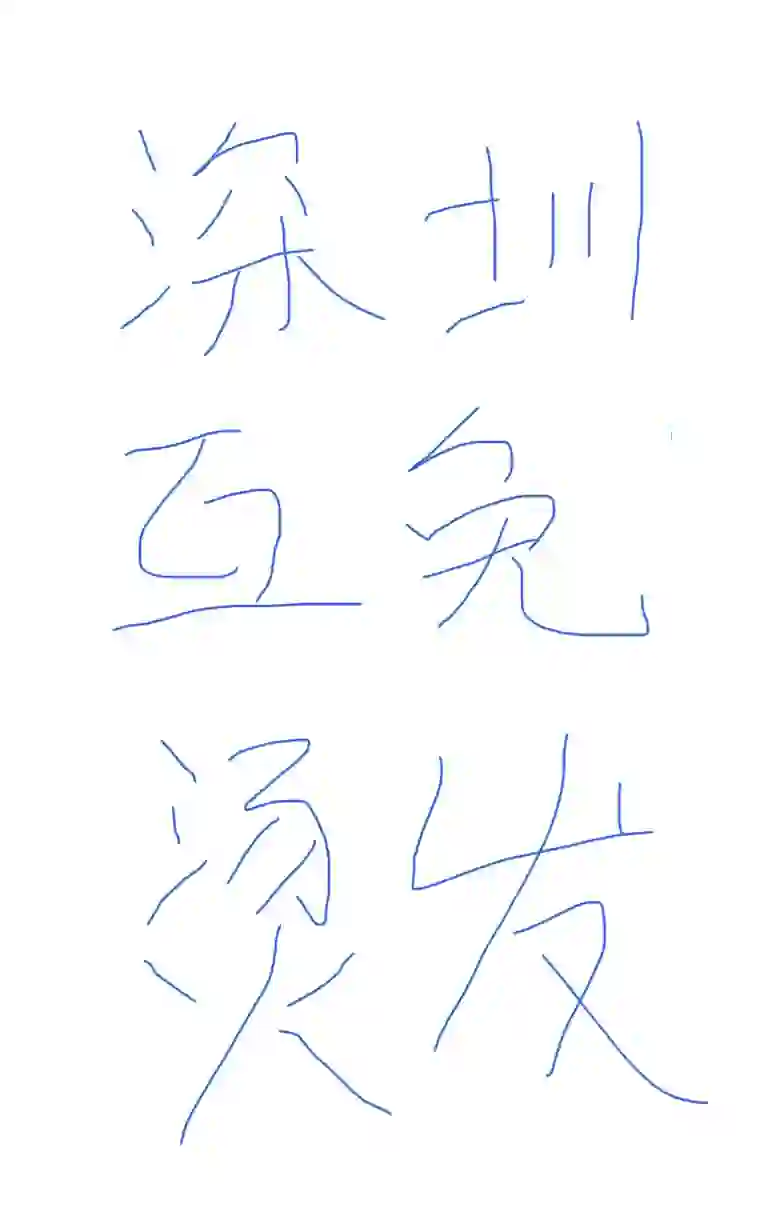 深圳
互免
烫发